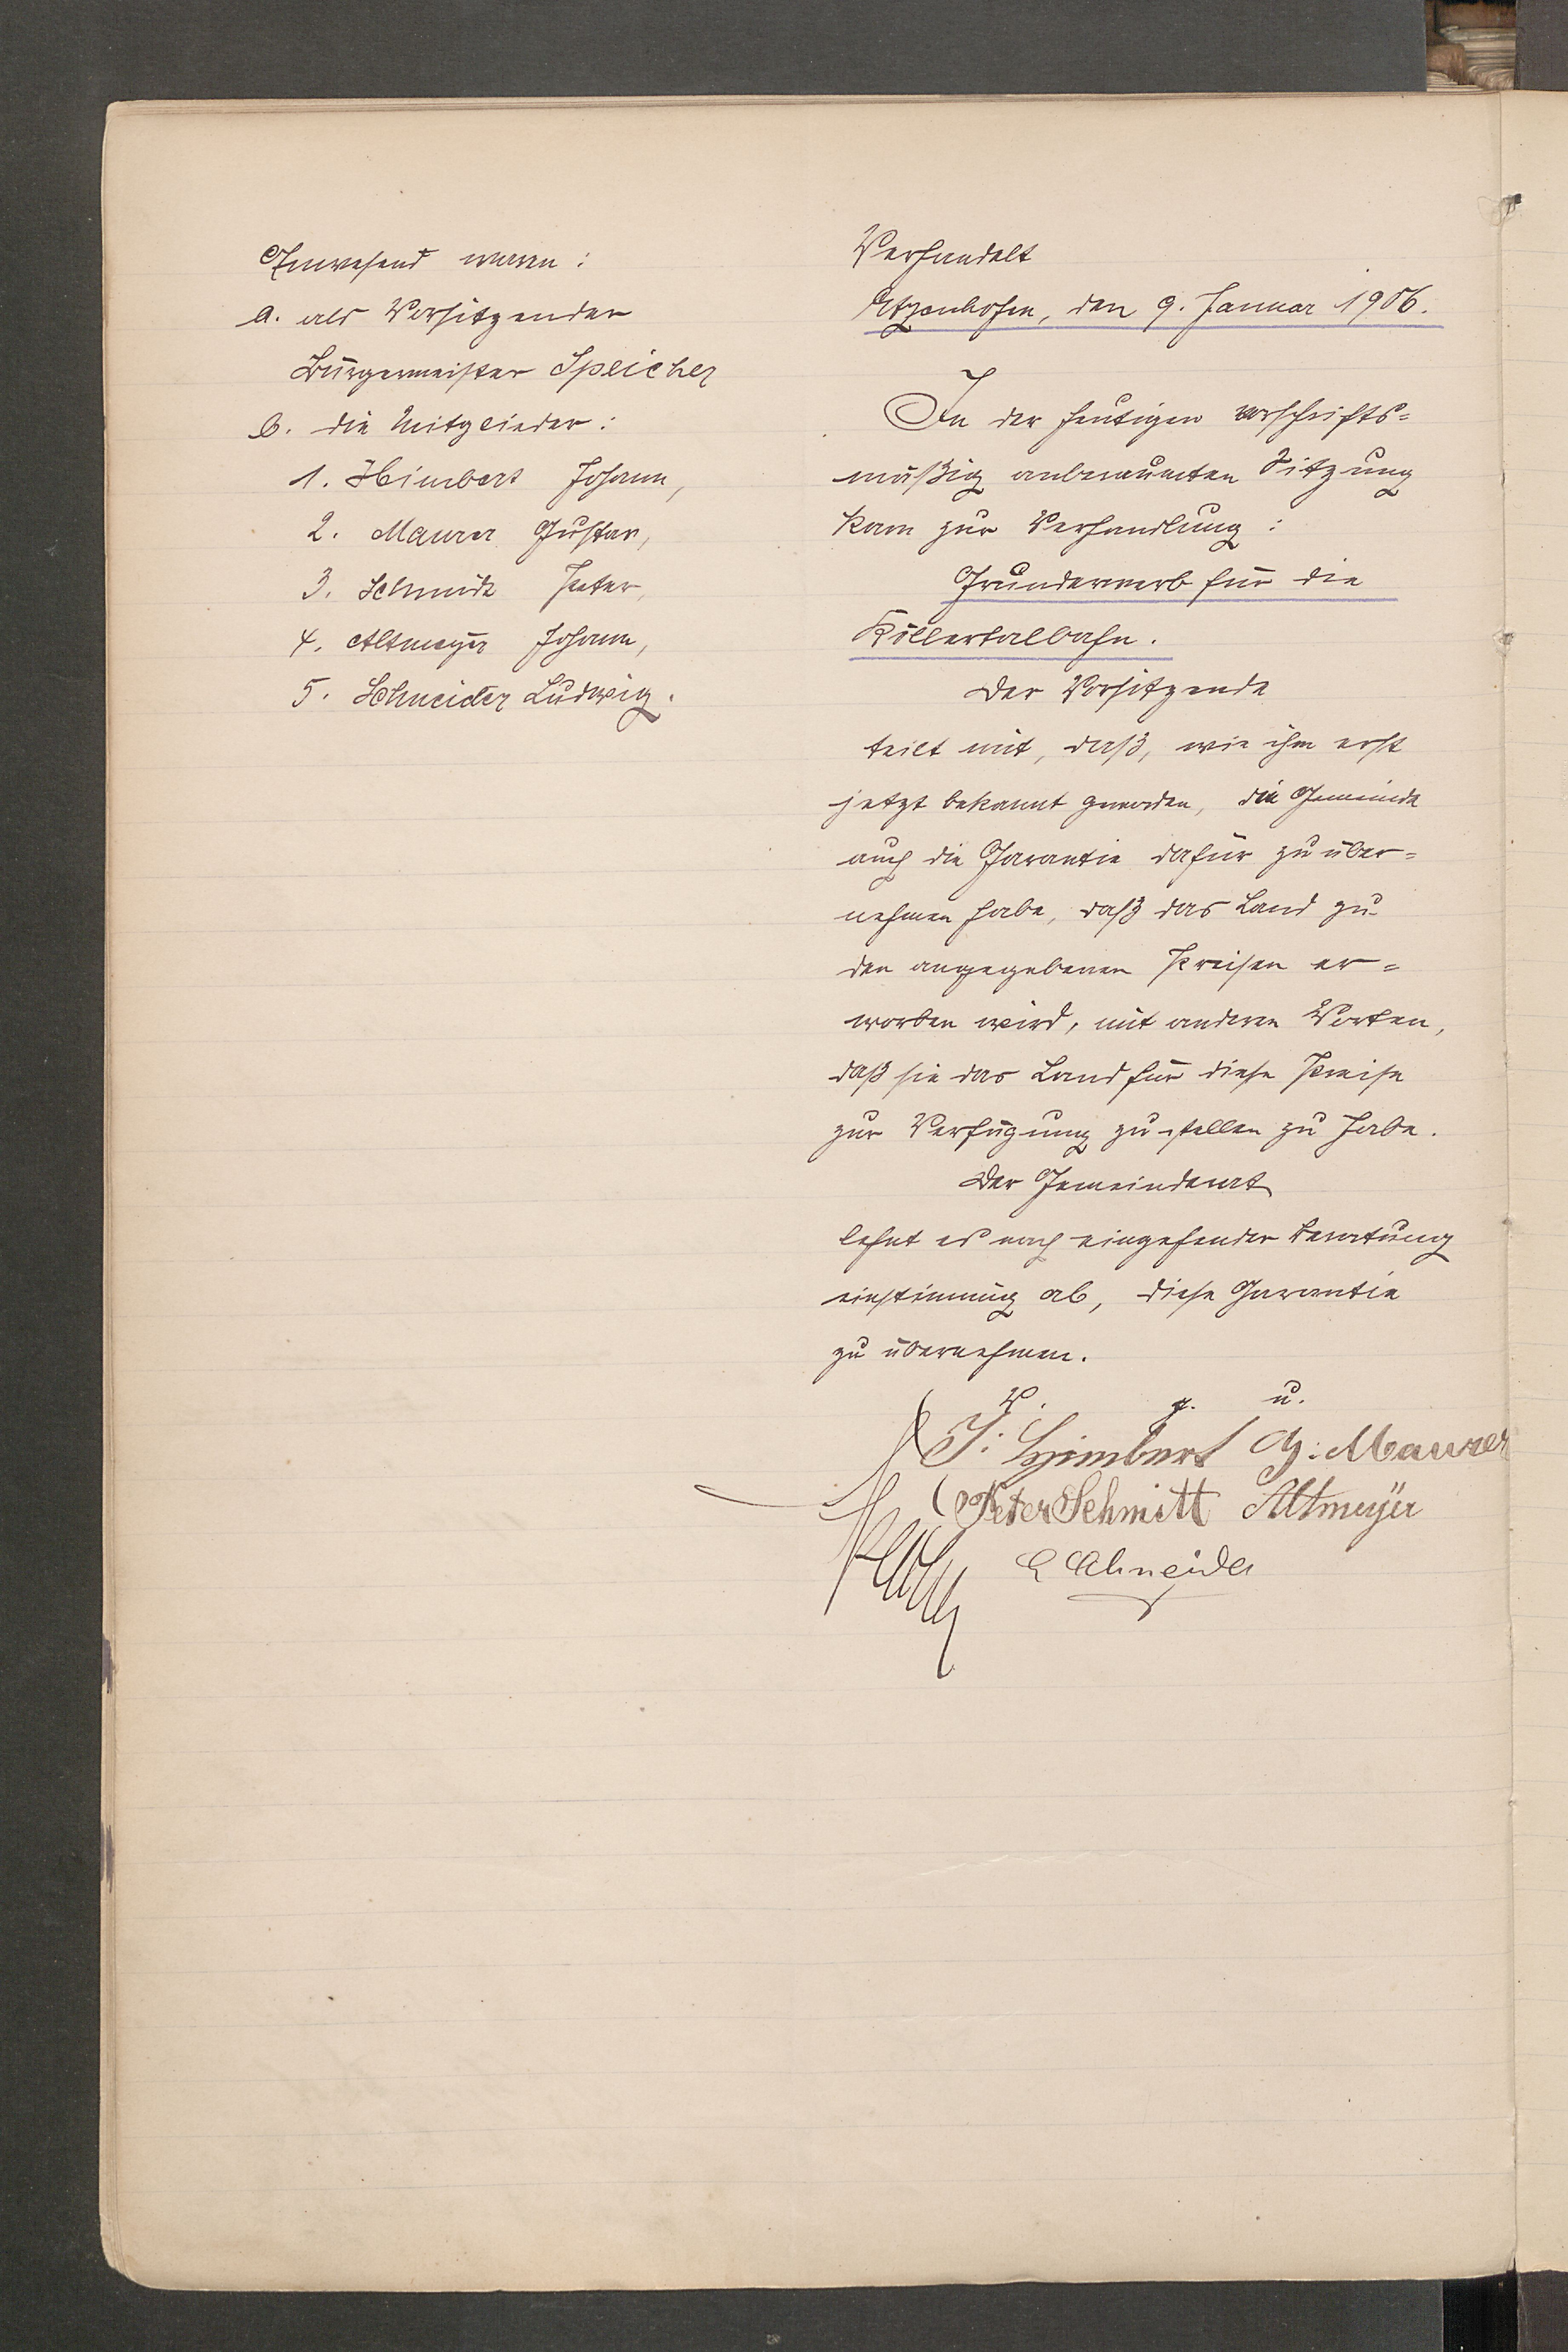 Anwesend waren:
a. als Vorsitzender
Bürgermeister Speicher
b. die Mitglieder:
1. Himbert Johann,
2. Maurer Gustav,
3. Schmidt Peter,
4. Altmeyer Johann,
5. Schneider Ludwig.
Verhandelt
Etzenhofen, den 9. Januar 1906.
In der heutigen vorschrifts=
mäßig anberaumten Sitzung
kam zur Verhandlung:
Grunderwerb für die
Köllertalbahn.
Der Vorsitzende
teilt mit, daß, wie ihm erst
jetzt bekannt geworden, die Gemeinde
auch die Garantie dafür zu über=
nehmen habe, daß das Land zu
den angegebenen Preisen er=
worben wird, mit anderen Worten,
daß sie das Land für diese Preise
zur Verfügung zu stellen zu habe.
Der Gemeinderat
lehnt es nach eingehender Beratung
einstimmig ab, diese Garantie
zu übernehmen.
V. g. u.
J: Himbert G: Maurer
Peter Schmitt Altmeyer
L Schneider